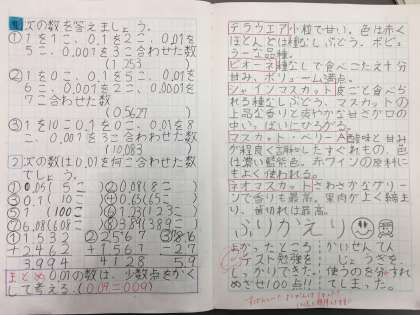 次の数を答えましょう。
①1を1こ、0.1を2こ、0.01を
5こ、0.001を3こ合わせた数
(1.253)
②1を0こ、0.1を5こ、0.01を
6こ、0.001を2こ、0.0001を
7こ合わせた数
(0.5627)
③1を10こ、0.1を0こ、0.01を8
こ、0.001を3こ合わせた数
(10.083)
次の数は0.01を何こ合わせた数
でしょう。
①0.05(5こ)②0.08(8こ)
③0.1(10こ)④0.65(65こ)
⑤1(100こ)⑥1.23(123こ)
⑦6.08(608こ)⑧3.89(389こ)
①1532 ②2567
+2462 +1561
3994 4128 5.9
まとめ0.01の数は、少数点をかくして考える。(0.09=009)
テラウェア小粒で甘い。色は赤く
ほとんどは種なしぶどう。ポピュ
ラーな品種。
ピオーネ種なしで食べごたえ十分
甘み、ボリューム満点。
シャインマスカット皮ごと食べら
れる種なしぶどう。マスカットの
上品な香りと爽やかな甘さが口の
中いっぱいにひろがる。
マスカット・ベリーA酸味と甘み
が程良く調和したすぐれもの。色
は濃い藍紫色。赤ワインの原料に
もよく使われる。
ネオマスカットさわさかなグリー
ンで香りも最高。果肉がよく締ま
り、歯切れは最高。
ふりかえり
よかったところ かいぜんてん
テスト勉強を じょうぎを
しっかりできた。 使うのを分すれ
めざせ100点! てしまった。